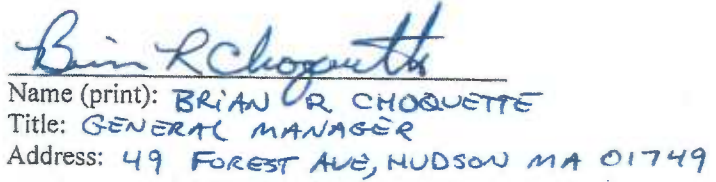 Brian R Choquette
Name (print): BRIAN R CHOQUETTE
Title: GENERAL MANAGER
Address: 49 FOREST AVE, HUDSON MA 01749